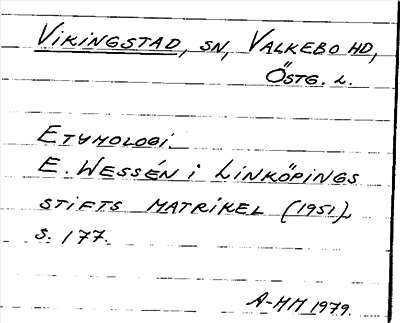 VIKINGSTAD, SN, VALKEBO HD,
ÖSTG. L.
ETYMOLOGI.
E. WESSÉN i LINKÖPINGS
STIFTS MATRIKEL (1951),
S. 177.
A-MM 1979.